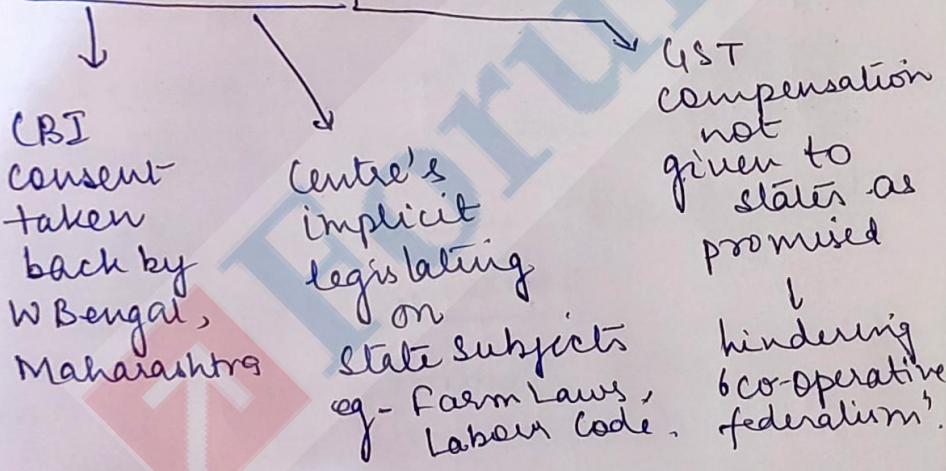 CBI
consent
taken
back by
W Bengal,
Maharashtra
Centre's
implicit
legislating
on
state subjects
eg- Farm Laws,
Labour Code.
GST
compensation
not
given to
states as
promised
↓
hindering
'co-operative
federalism'.
Forum